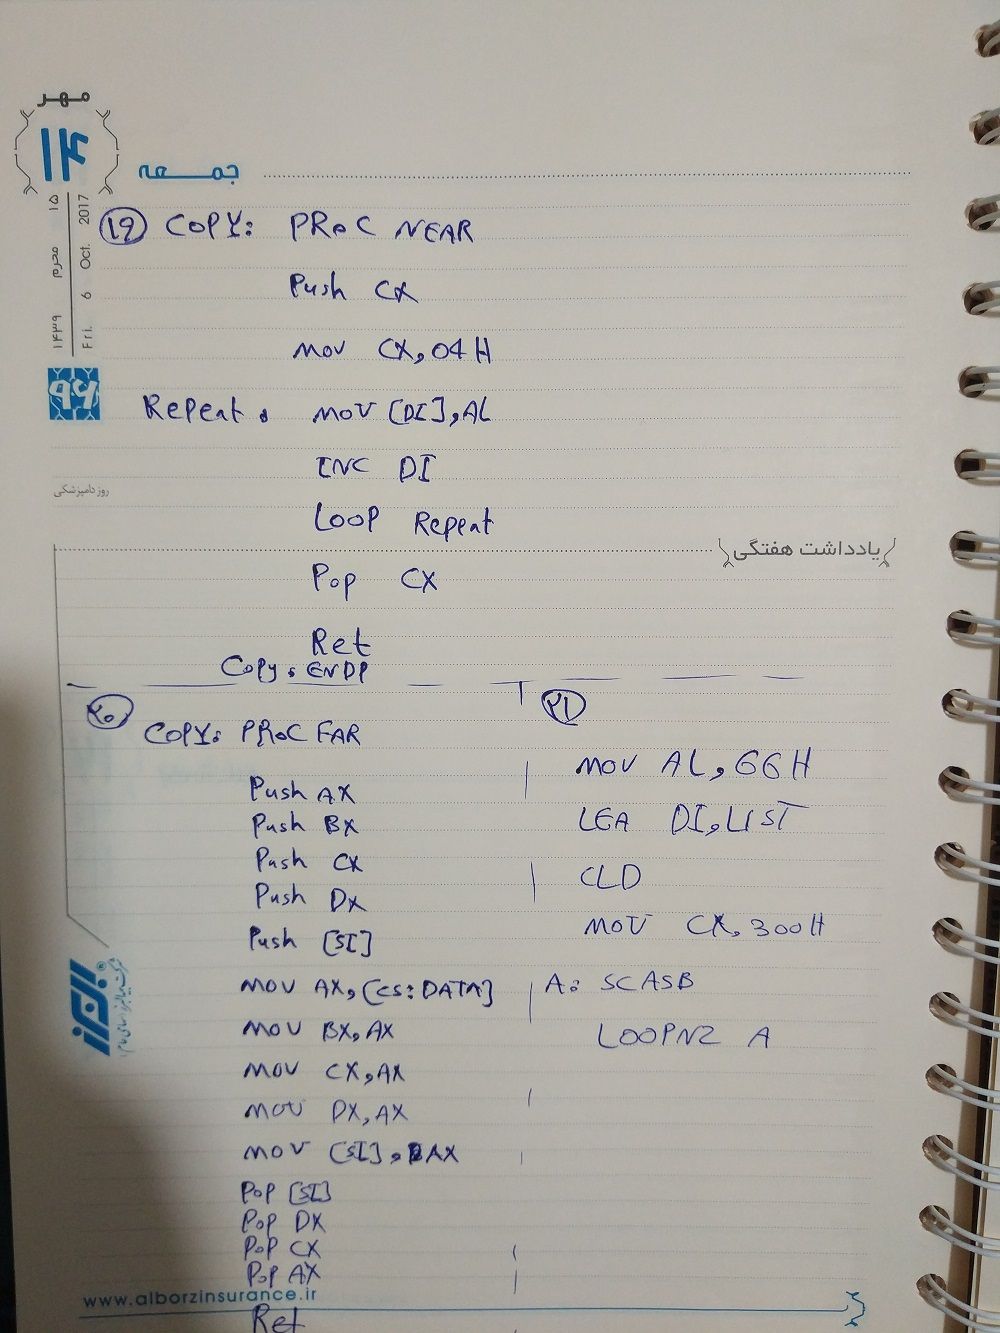 مهر
۱۴
جمعه
۱۵ محرم ۱۴۳۹
Fri. 6 Oct. 2017
۹۶
روز دامپزشکی
۱۹ COPY: PROC NEAR
Push CX
MOV CX, 04H
Repeat: MOV [DI], AL
INC DI
LOOP Repeat
یادداشت هفتگی
POP CX
Ret
Copy: ENDP
۲۰ COPY: PROC FAR
Push AX
Push BX
Push CX
Push DX
Push [SI]
MOV AX, [CS:DATA]
MOV BX, AX
MOV CX, AX
MOV DX, AX
MOV [SI], AX
POP [SI]
POP DX
POP CX
POP AX
Ret
۲۱
MOV AL, 66H
LEA DI, LIST
CLD
MOV CX, 300H
A: SCASB
LOOPNZ A
www.alborzinsurance.ir